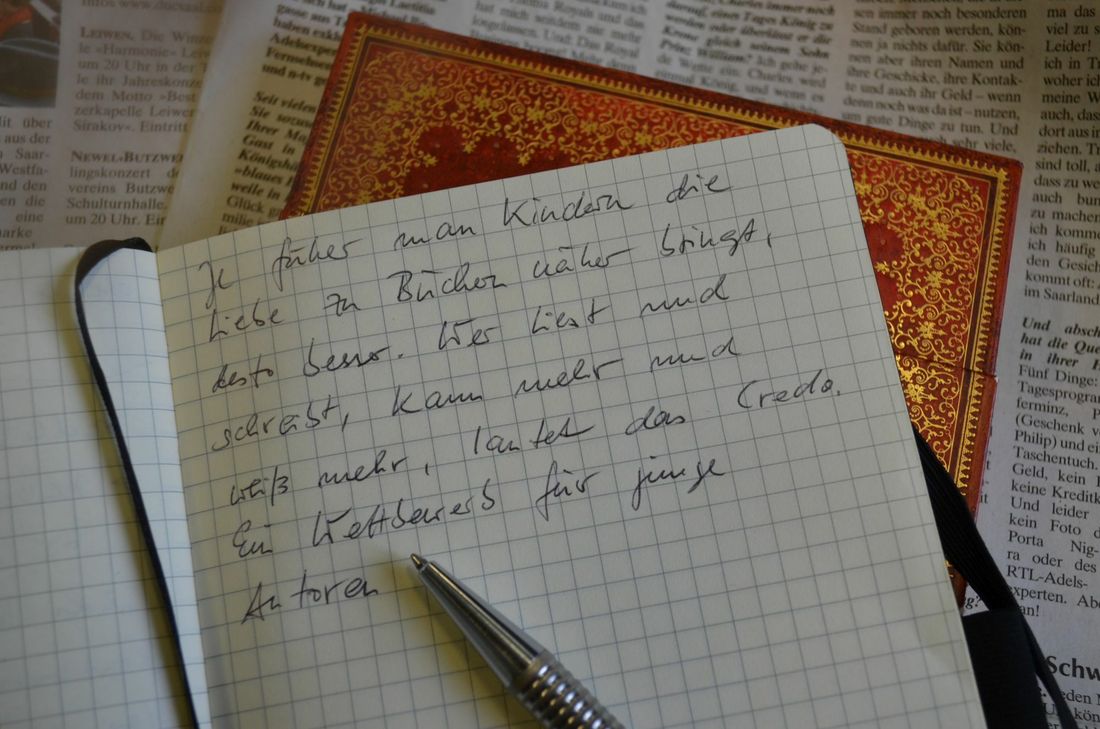 Je früher man Kindern die
Liebe zu Büchern näher bringt,
desto besser. Wer liest und
schreibt, kann mehr und
weiß mehr, lautet das Credo.
Ein Wettbewerb für junge
Autoren
LEIWEN. Die Winze
le »Harmonie« Leiw
um 20 Uhr in der T
le ihr Jahreskonze
dem Motto »Best
zerkapelle Leiwen
Sirakov«. Eintritt
NEWEL-BUTZWE
lingskonzert de
vereins Butzwe
Schulturnhalle.
um 20 Uhr. Ein
Mit über
aus der
Saar-
Westfa-
und den
en die
eine
haben exklus
Adelsexper
Fernsehen
und n-tv ge
Seit vielen
Sie sozusa
Ihrer Maj
Gast in
Königsha
»blaues
weile in
Glück g
milie
sen immer noch besonderen
Stand geboren werden, kön-
nen ja nichts dafür. Sie kön-
nen aber ihren Namen und
ihre Geschicke, ihre Kontak-
te und auch ihr Geld – wenn
dennoch was da ist – nutzen,
um gute Dinge zu tun. Und
sehr viele,
ma das
viel zu s
Leider!
ich in Tr
woher ich
meine W
auch, dass
dort aus in
ziehen. Tr
sind toll, a
dass zu we
auch bun
zu machen
ich komme
ich häufig
den Gesich
kommt oft:
im Saarland
Und absch
hat die Que
in ihrer H
Fünf Dinge:
Tagesprogram
ferminz, P
(Geschenk v
Philip) und ei
Taschentuch.
Geld, kein
keine Kreditk
Und leider
kein Foto d
Porta Nig-
ra oder des
RTL-Adels-
experten. Abe
an!
Schw